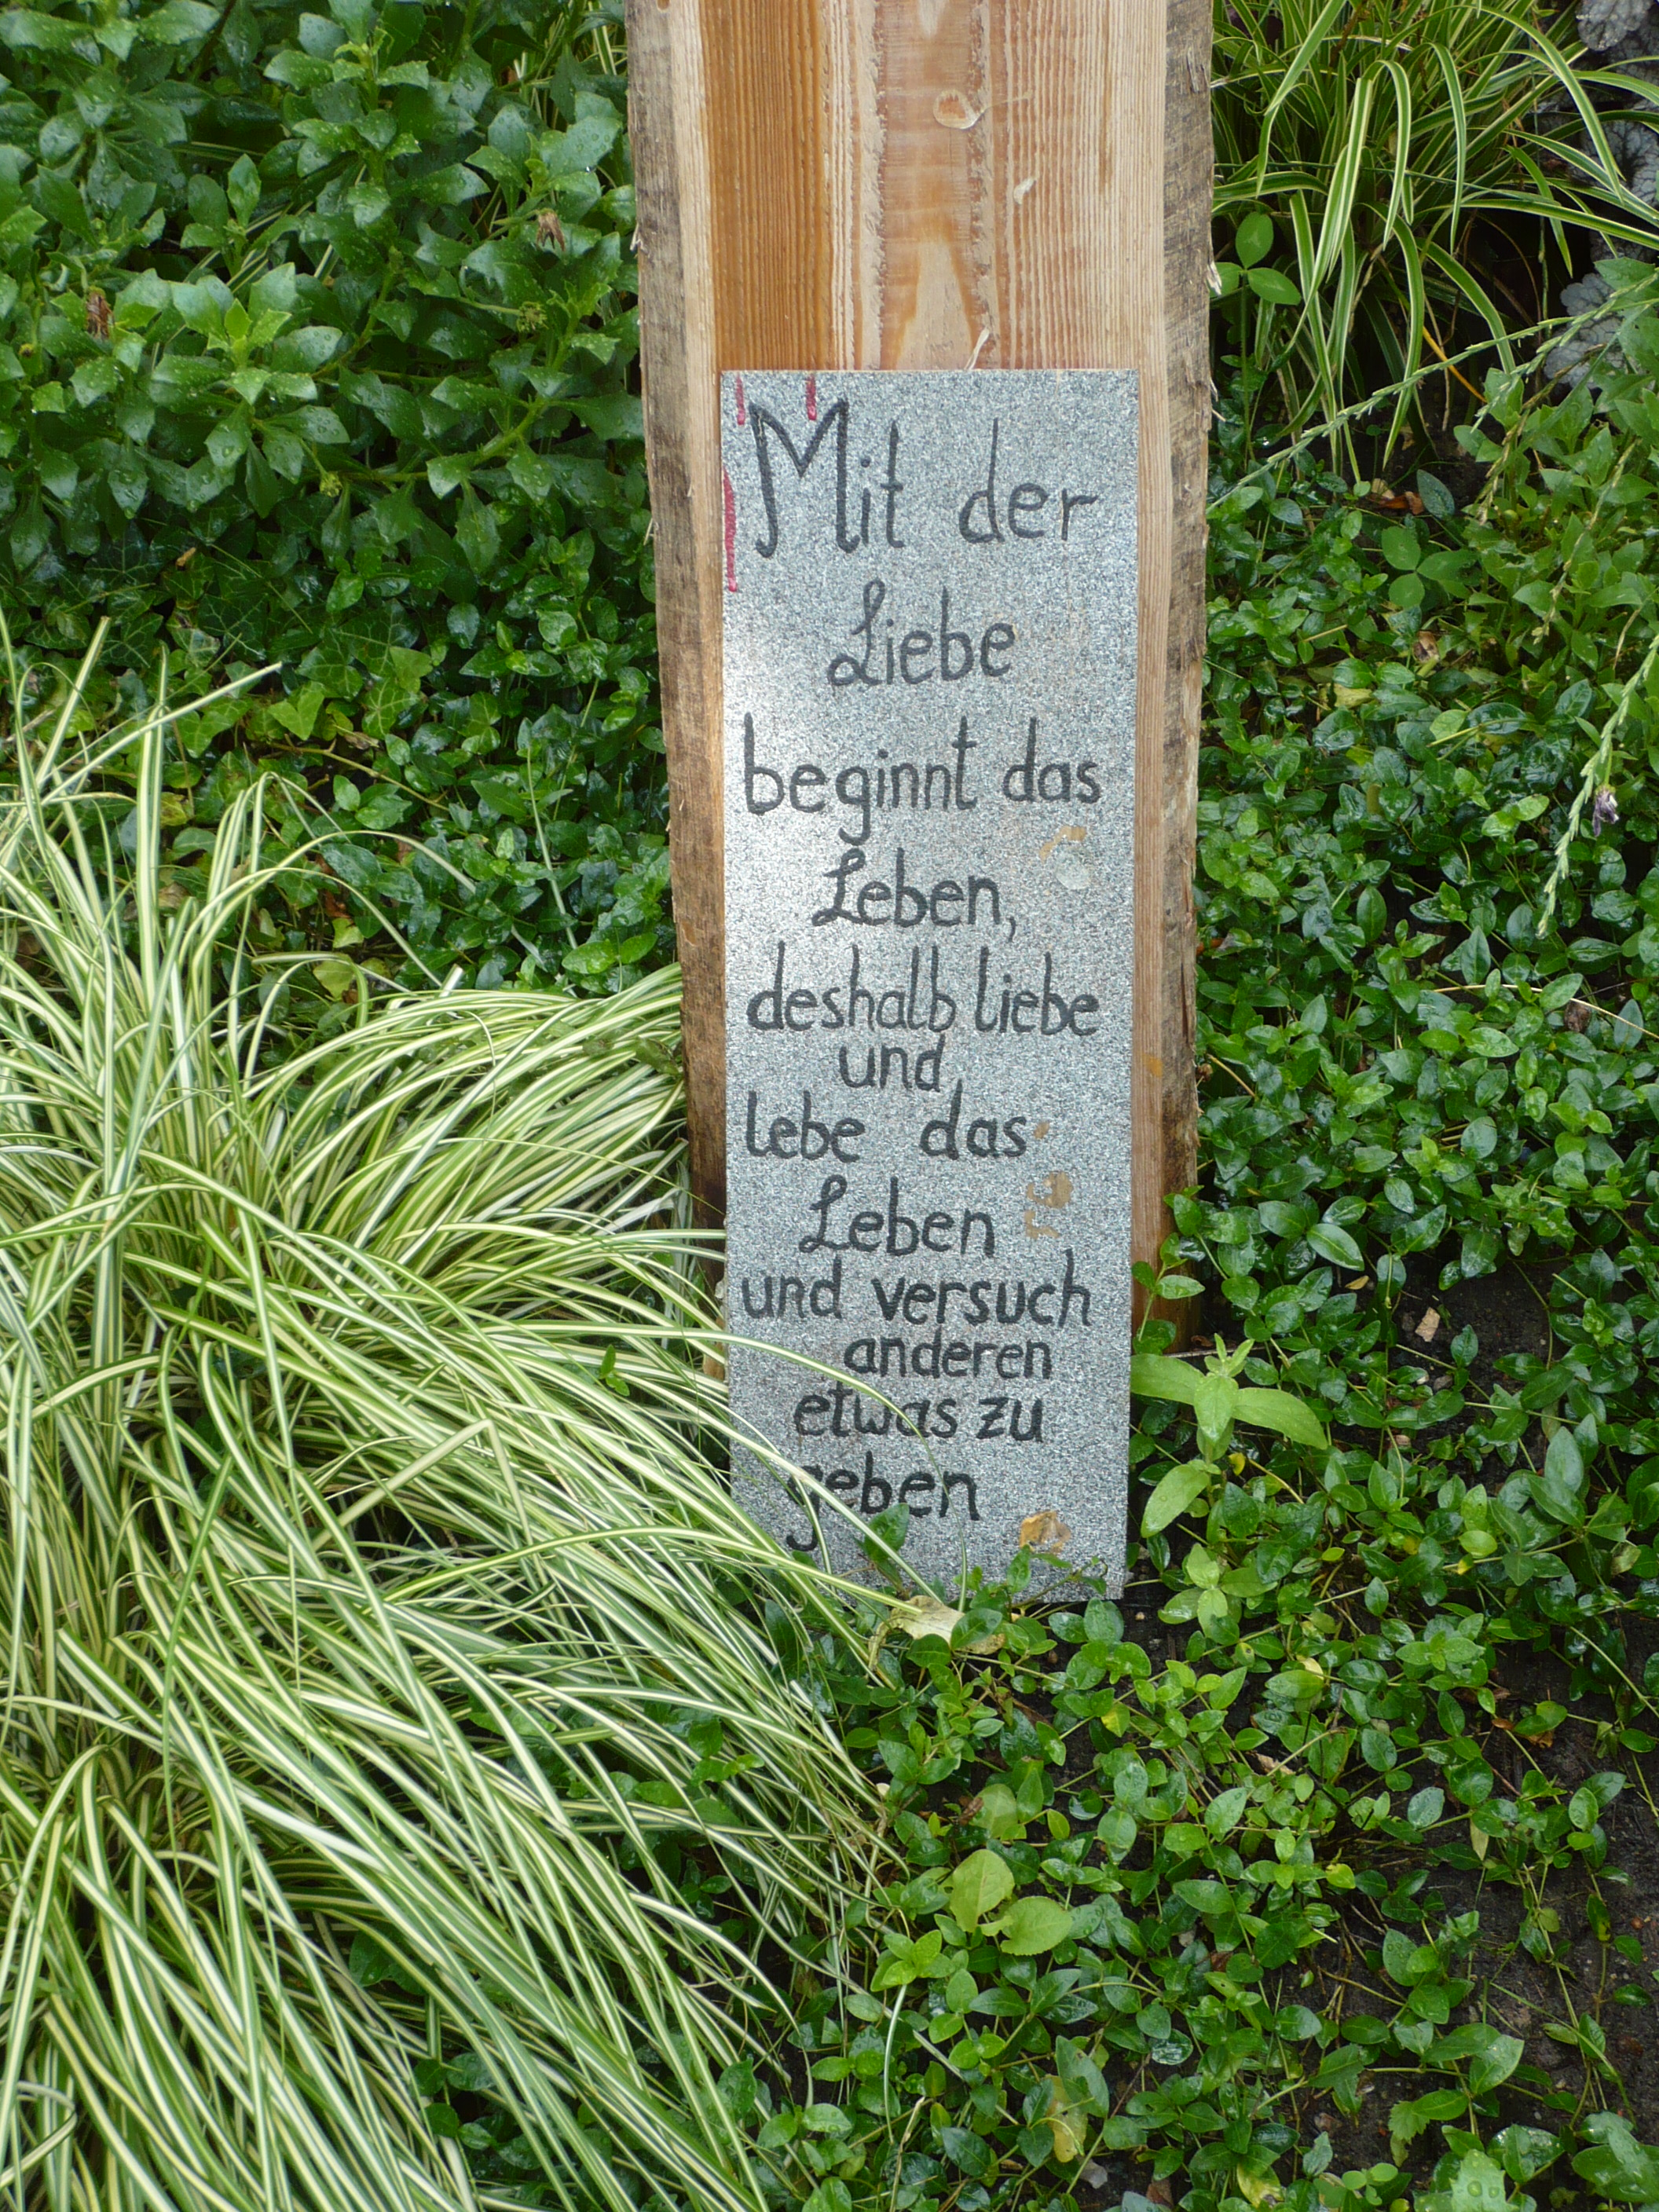 Mit der
Liebe
beginnt das
Leben,
deshalb liebe
und
lebe das
Leben
und versuch
anderen
etwas zu
geben